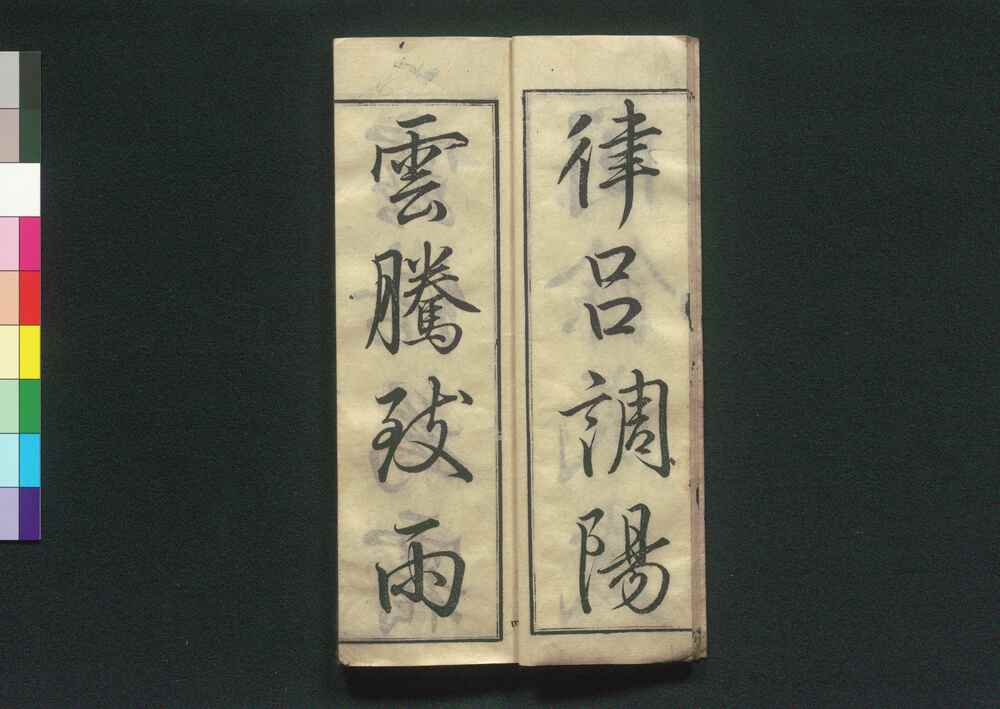 律呂調陽
雲騰致雨